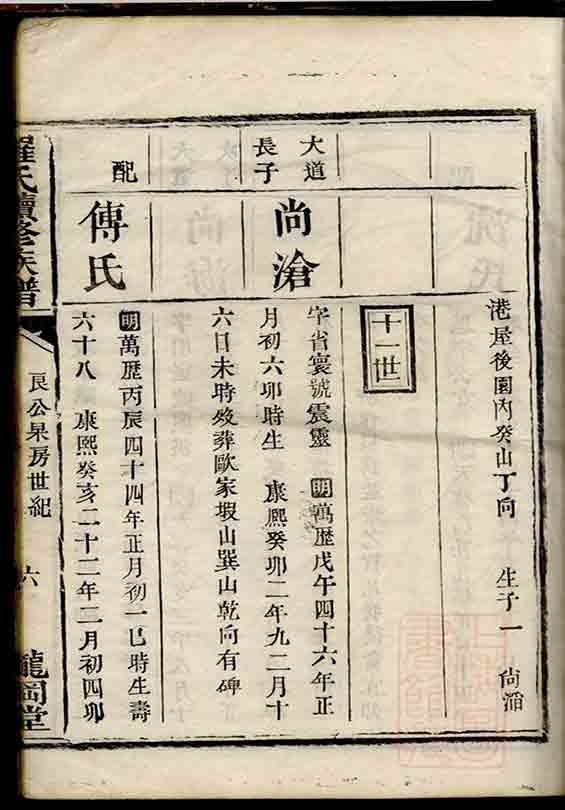 港屋後園內癸山丁向　生子一　尙滔
十一世
大道長子
尚滄
字省寰號震靈　明萬歷戊午四十六年正
月初六卯時生　康熙癸卯二年九二月十
六日未時歿葬歐家塅山巽山乾向有碑
配
傅氏
明萬歷丙辰四十四年正月初一巳時生壽
六十八　康熙癸亥二十二年二月初四卯
羅氏續修族譜
良公杲房世紀
六
龍岡堂